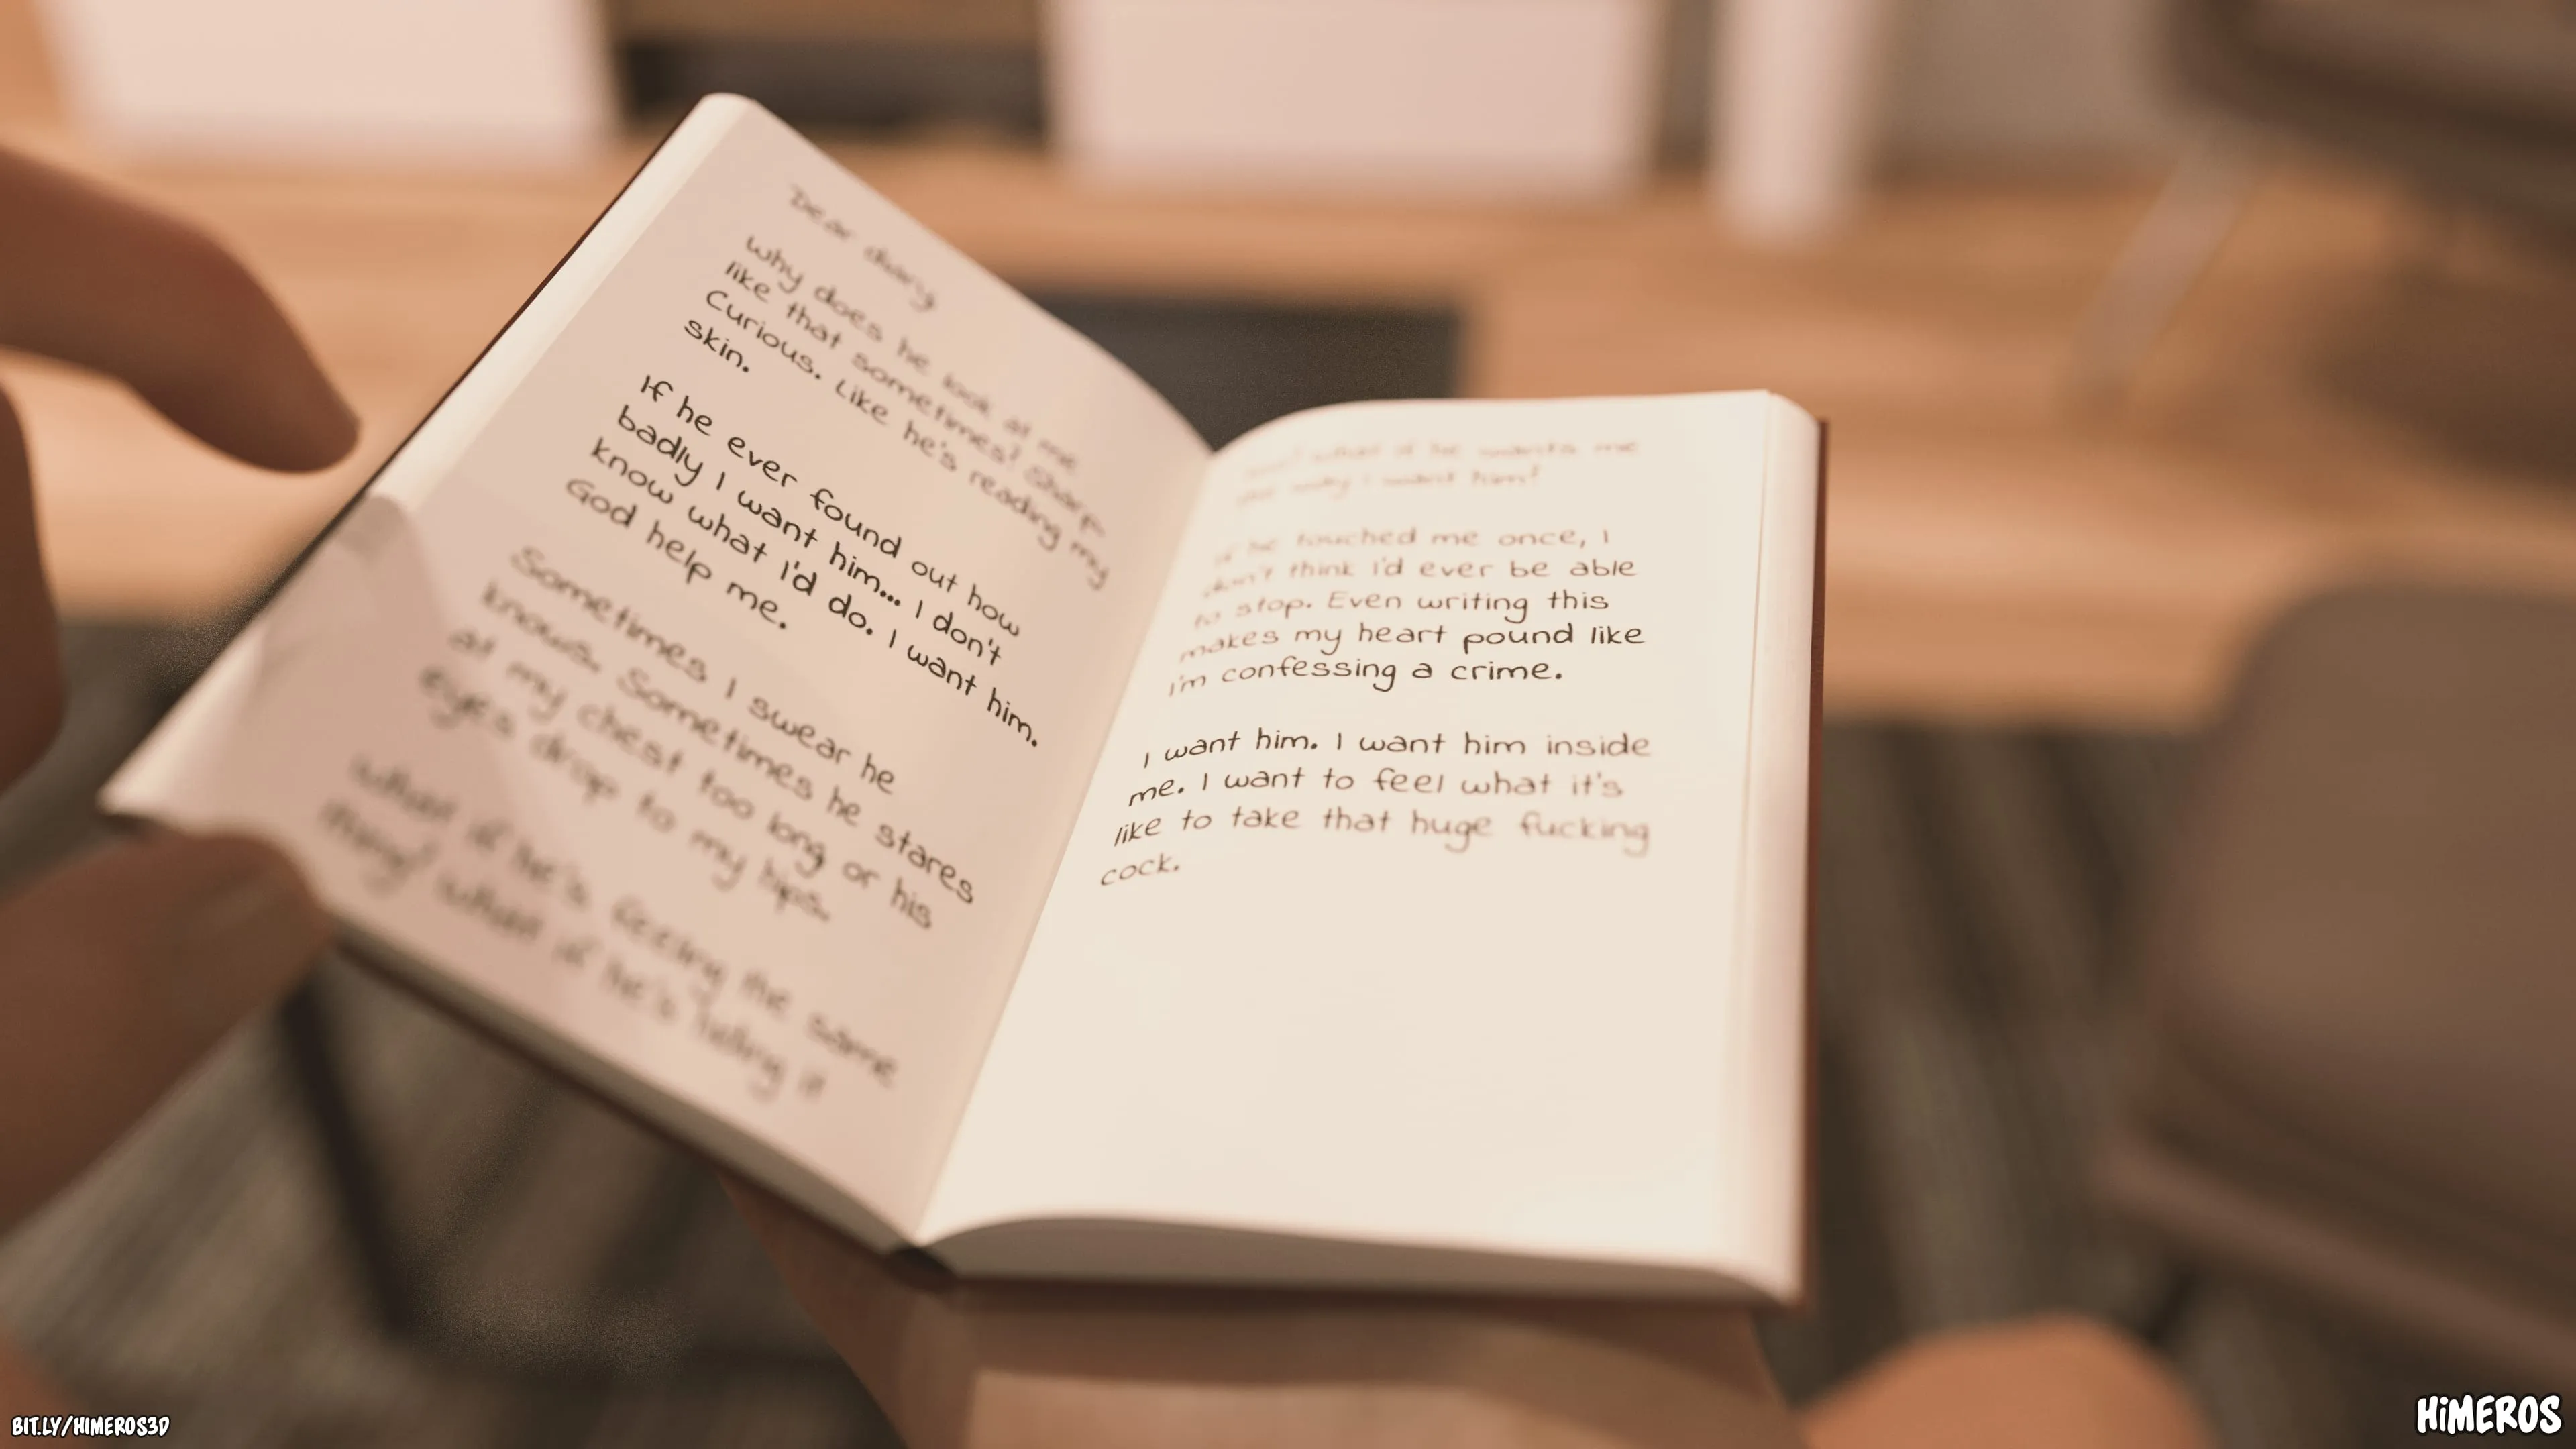 Dear diary
why does he look at me
like that sometimes? Sharp.
Curious. Like he's reading my
skin.
If he ever found out how
badly I want him... I don't
know what I'd do. I want him.
God help me.
Sometimes I swear he
knows. Sometimes he stares
at my chest too long or his
eyes drop to my hips.
what if he's feeling the same
thing? what if he's hiding it
too? what if he wants me
the way I want him?
If he touched me once, I
don't think I'd ever be able
to stop. Even writing this
makes my heart pound like
I'm confessing a crime.
I want him. I want him inside
me. I want to feel what it's
like to take that huge fucking
cock.
BIT.LY/HIMEROS3D
HiMEROS